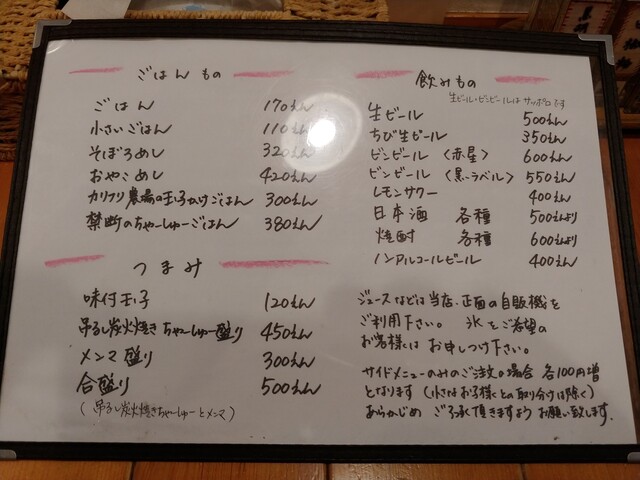 ごはんもの
ごはん 170えん
小さいごはん 110えん
そぼろめし 320えん
おやこめし 420えん
カリフリ農場の玉子かけごはん 300えん
禁断のちゃーしゅーごはん 380えん
つまみ
味付玉子 120えん
吊るし炭火焼きちゃーしゅー盛り 450えん
メンマ盛り 300えん
合盛り 500えん
(吊るし炭火焼きちゃーしゅーとメンマ)
飲みもの
生ビール・ビンビールはサッポロです
生ビール 500えん
ちび生ビール 350えん
ビンビール 〈赤星〉 600えん
ビンビール 〈黒ラベル〉 550えん
レモンサワー 400えん
日本酒 各種 500えんより
焼酎 各種 600えんより
ノンアルコールビール 400えん
ジュースなどは当店、正面の自販機を
ご利用下さい。 氷をご希望の
お客様は お申しつけ下さい。
サイドメニューのみのご注文の場合 各100円増
となります (小さなお子様との取り分けは除く)
あらかじめ ご了承頂きますよう お願い致します。